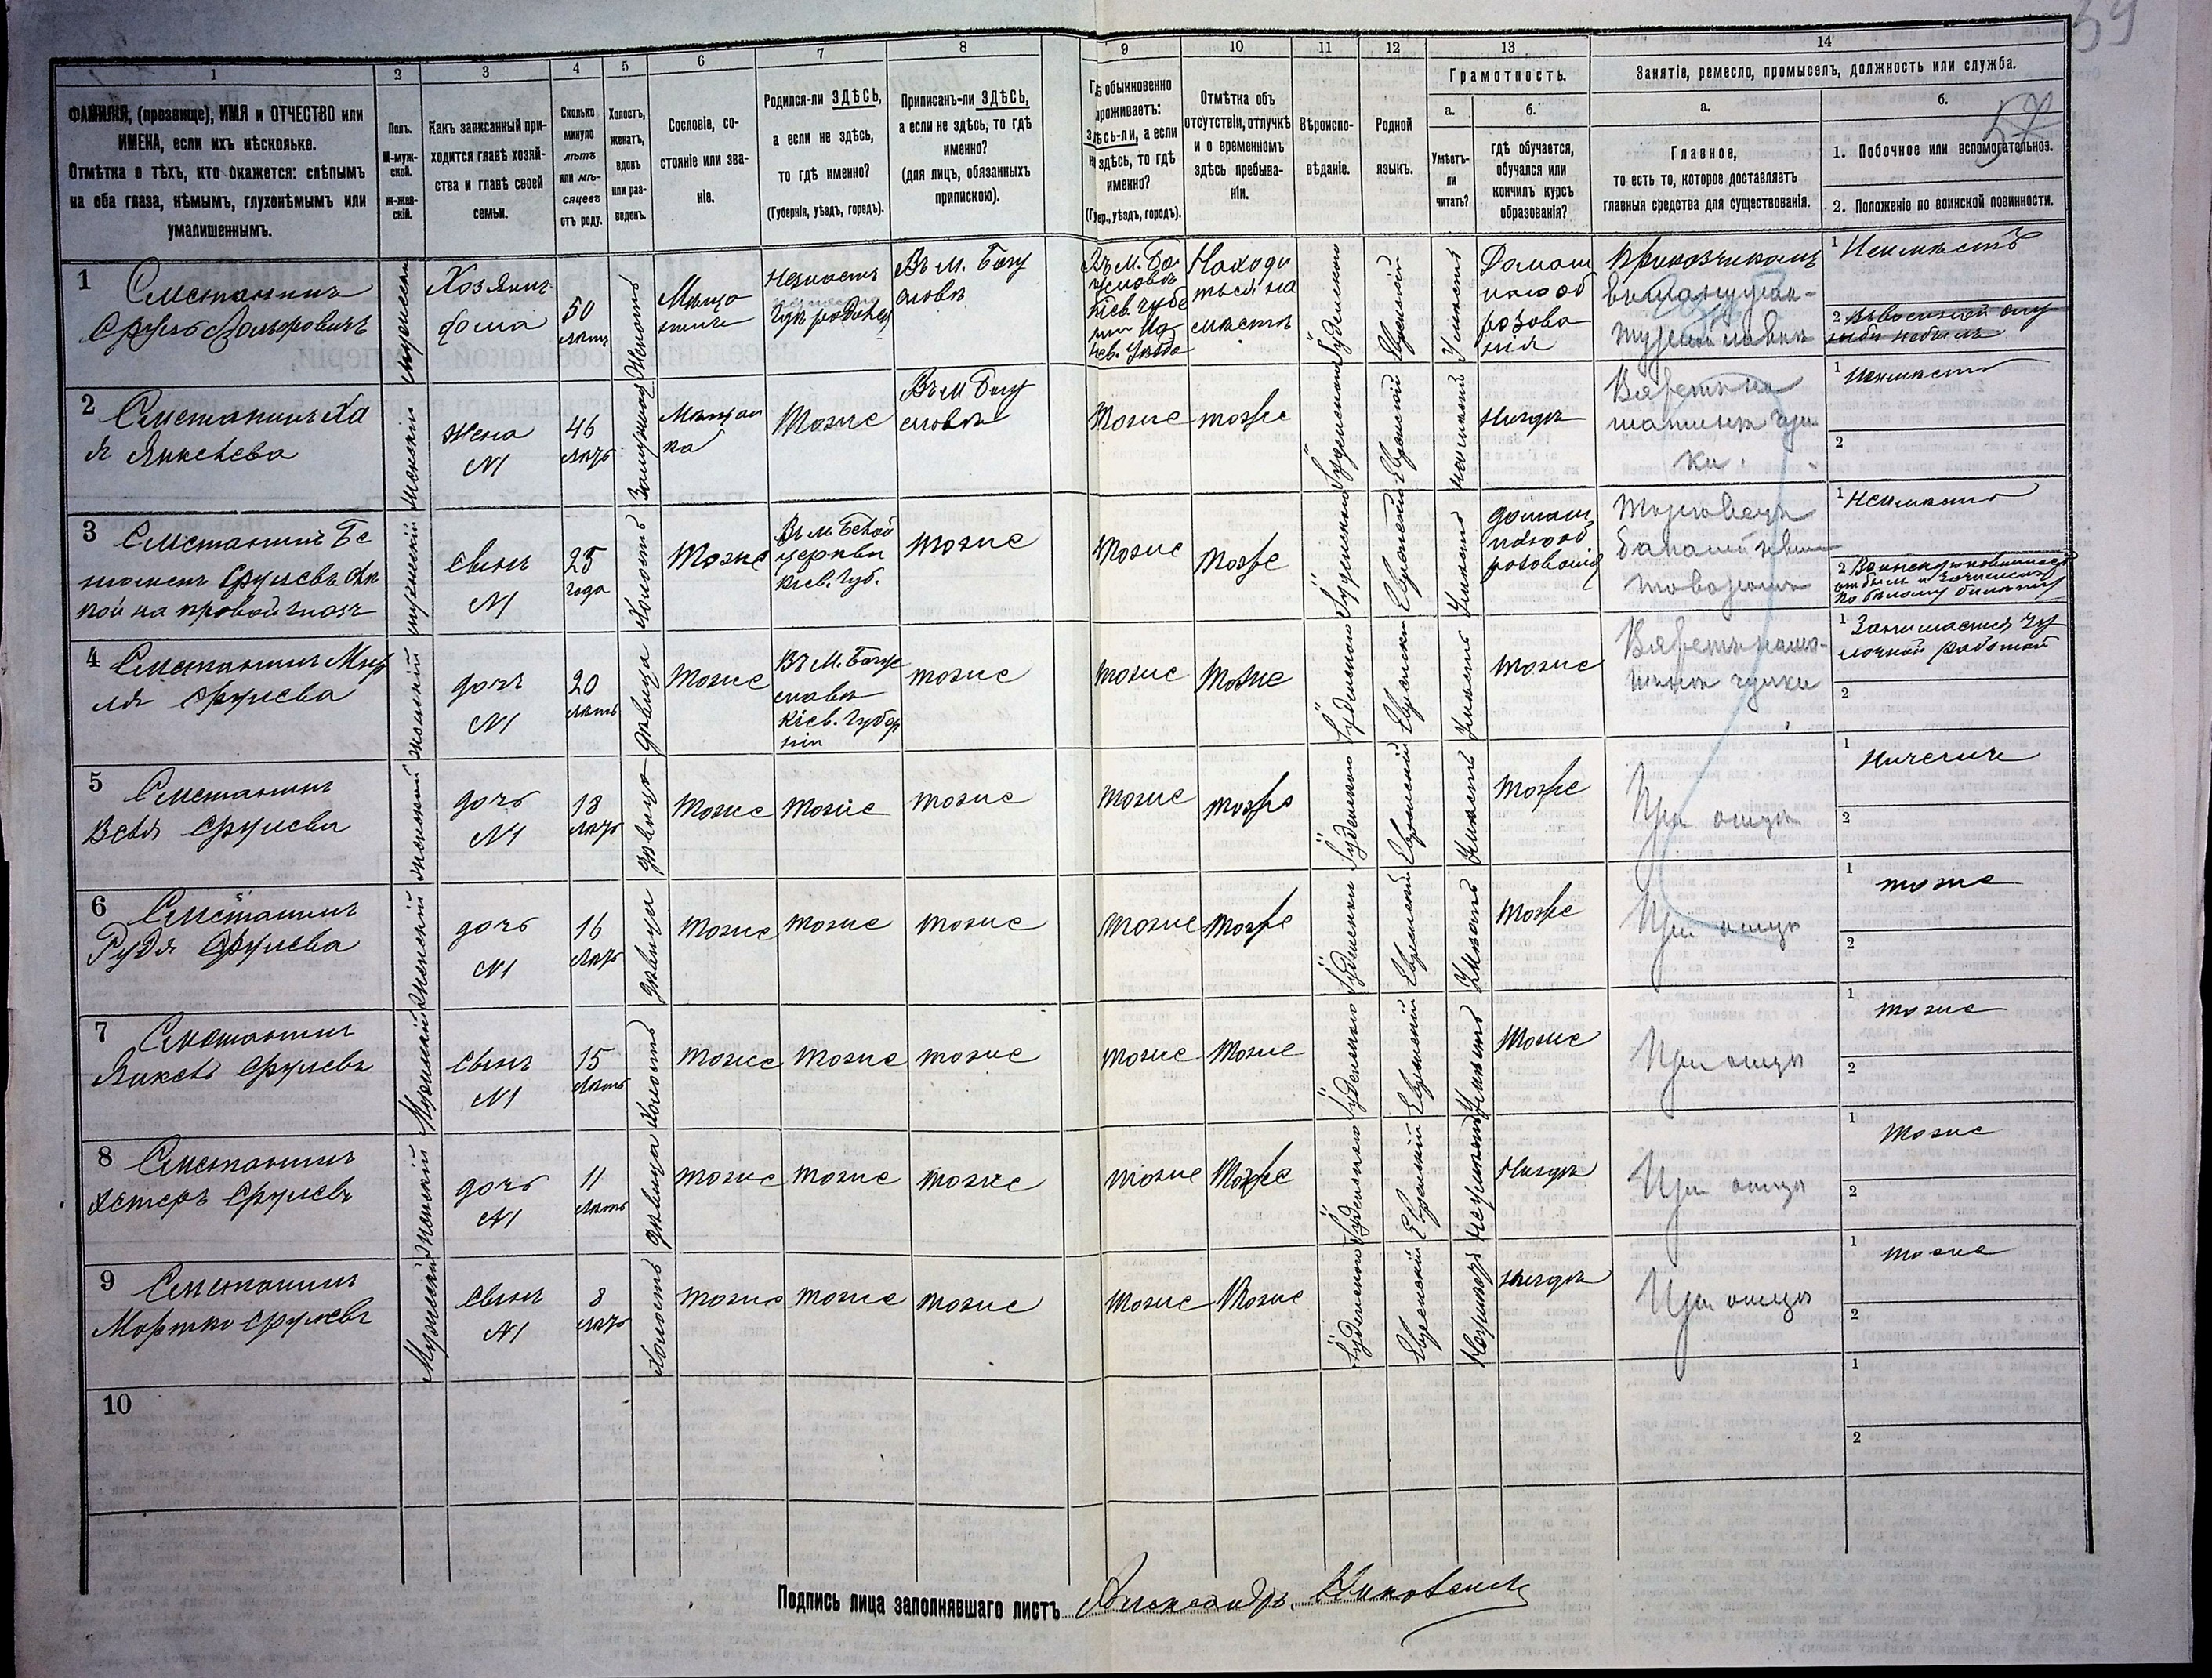 59
57
1
2
3
4
5
6
7
8
9
10
11
12
13
14
ФАМИЛІЯ, (прозвище), ИМЯ и ОТЧЕСТВО или
ИМЕНА, если ихъ нѣсколько.
Отмѣтка о тѣхъ, кто окажется: слѣпымъ
на оба глаза, нѣмымъ, глухонѣмымъ или
умалишеннымъ.
Полъ.
М-муж-
ской.
Ж-жен-
скій.
Какъ записанный при-
ходится главѣ хозяй-
ства и главѣ своей
семьи.
Сколько
минуло
лѣтъ
или мѣ-
сяцевъ
отъ роду.
Холостъ,
женатъ,
вдовъ
или раз-
веденъ.
Сословіе, со-
стояніе или зва-
ніе.
Родился-ли ЗДѢСЬ,
а если не здѣсь,
то гдѣ именно?
(Губернія, уѣздъ, городъ).
Приписанъ-ли ЗДѢСЬ,
а если не здѣсь, то гдѣ
именно?
(для лицъ, обязанныхъ
припискою).
Гдѣ обыкновенно
проживаетъ:
здѣсь-ли, а если
не здѣсь, то гдѣ
именно?
(Губер., уѣздъ, городъ).
Отмѣтка объ
отсутствіи, отлучкѣ
и о временномъ
здѣсь пребыва-
ніи.
Вѣроиспо-
вѣданіе.
Родной
языкъ.
Грамотность.
а.
Умѣетъ-
ли
читать?
б.
гдѣ обучается,
обучался или
кончилъ курсъ
образованія?
Занятіе, ремесло, промыселъ, должность или служба.
а.
Главное,
то есть то, которое доставляетъ
главныя средства для существованія.
б.
1. Побочное или вспомогательное.
2. Положеніе по воинской повинности.
1 Сметанинъ
Сруль
мужской
Хозяинъ
дома
50
лѣтъ
Женатъ
Въ м. Богу
славѣ
Находи
ться на
мѣстѣ
Іудейского
Еврейскій
Умѣетъ
Домаш
нее об
разова
ніе
Прикащикомъ
1 Неимѣетъ
2
2 Сметанинъ Ха
я Янкелева
Женскій
жена
№1
46
лѣтъ
Замужная
Мѣщан
ка
тоже
Въ м. Богу
славѣ
тоже
тоже
Іудейского
Еврейскій
Нигдѣ
чул
ки.
1 Неимѣетъ
2
3 Сметанинъ Бе
Срулевъ
пой на правой глазъ
мужескій
сынъ
№1
25
года
Холостъ
тоже
Въ м. Бѣлой
церкви
Кіев. Губ.
тоже
тоже
тоже
Іудейского
Еврейскій
Умѣетъ
домаш
нее об
разованіе
Торговецъ
товаромъ
1 Неимѣетъ
2
4 Сметанинъ
Срулева
женскій
дочь
№1
20
лѣтъ
Дѣвица
тоже
Въ М. Богу
славѣ
Кіев. Губер
ніи
тоже
тоже
тоже
Іудейского
Еврейскій
Умѣетъ
тоже
чулки
1 Занимается чу
лочной работой
2
5 Сметанинъ
Бейля Срулева
женскій
дочь
№1
18
лѣтъ
Дѣвица
тоже
тоже
тоже
тоже
тоже
Іудейского
Еврейскій
Умѣетъ
тоже
При отцѣ
1
2
6 Сметанинъ
Рудя Срулева
Женскій
дочь
№1
16
лѣтъ
Дѣвица
тоже
тоже
тоже
тоже
тоже
Іудейского
Еврейскій
Умѣетъ
тоже
При отцѣ
1 тоже
2
7 Сметанинъ
Янкель Срулевъ
Мужескій
сынъ
№1
15
лѣтъ
Холостъ
тоже
тоже
тоже
тоже
тоже
Іудейского
Еврейскій
Умѣетъ
тоже
При отцѣ
1 тоже
2
8 Сметанинъ
Хстеръ Срулевъ
Женскій
дочь
№1
11
лѣтъ
Дѣвица
тоже
тоже
тоже
тоже
тоже
Іудейского
Еврейскій
Неумѣетъ
Нигдѣ
При отцѣ
1 тоже
2
9 Сметанинъ
Мортко Срулевъ
Мужескій
сынъ
№1
8
лѣтъ
Холостъ
тоже
тоже
тоже
тоже
тоже
Іудейского
Еврейскій
Неумѣетъ
Нигдѣ
При отцѣ
1 тоже
2
10
1
2
Подпись лица заполнявшаго листъ Александръ